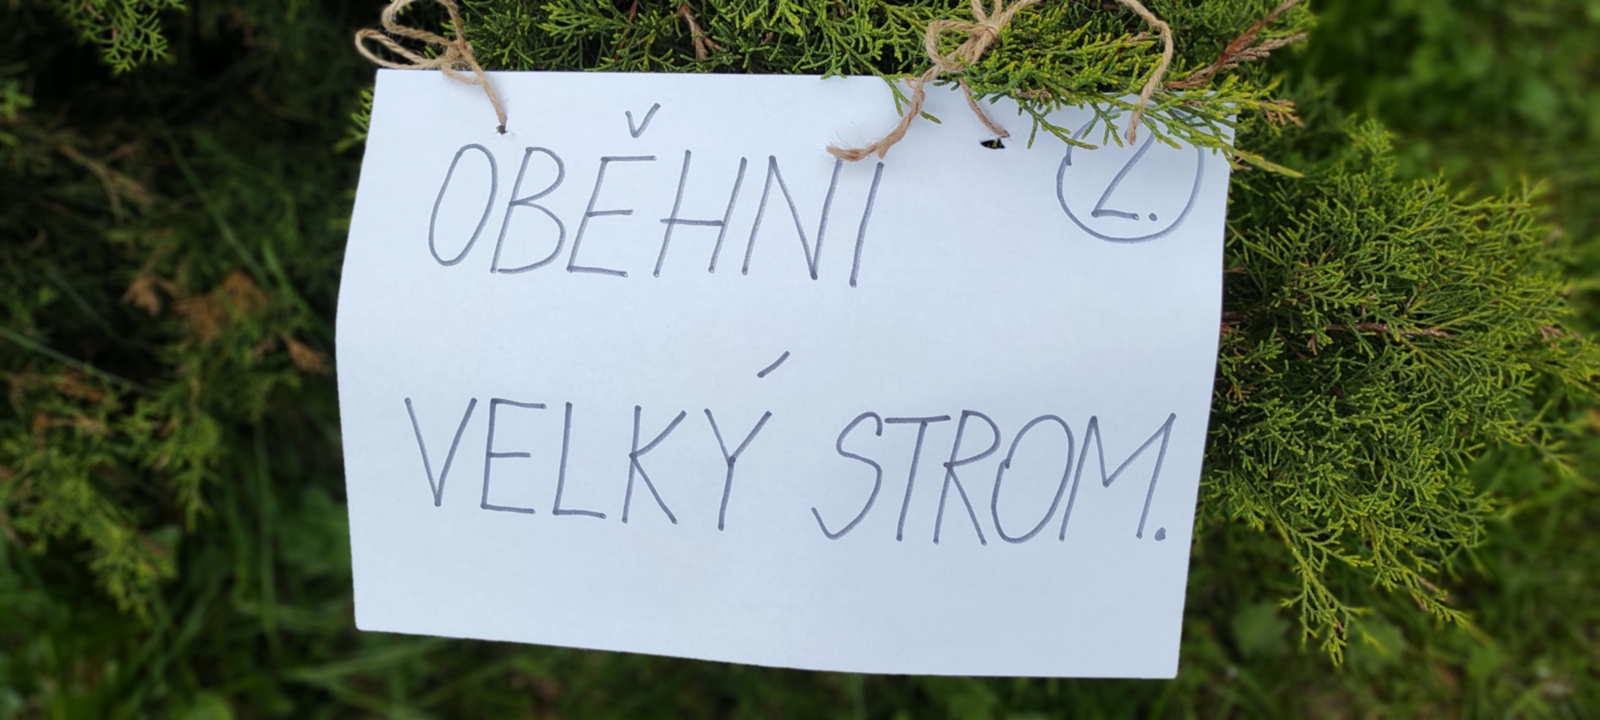 OBĚHNI 2.
VELKÝ STROM.